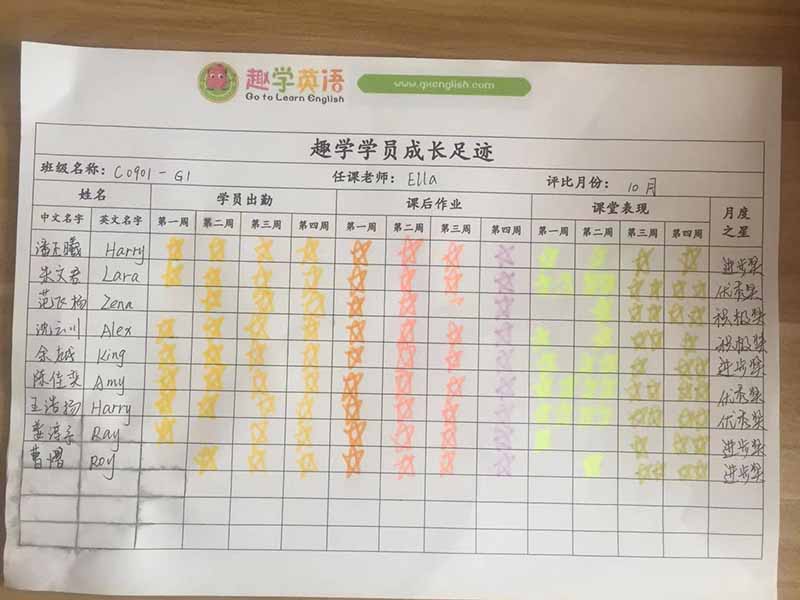 趣学英语
Go to Learn English
www.qxenglish.com
趣学学员成长足迹
班级名称: C0901-G1 任课老师: Ella 评比月份: 10月
姓名 学员出勤 课后作业 课堂表现 月度之星
中文名字 英文名字 第一周 第二周 第三周 第四周 第一周 第二周 第三周 第四周 第一周 第二周 第三周 第四周
Harry 进步奖
朱文君 Lara 优秀奖
Zena 积极奖
沈云川 Alex 积极奖
余越 King 进步奖
陈佳奕 Amy 优秀奖
王浩扬 Harry 优秀奖
Ray 进步奖
曹熠 Roy 进步奖